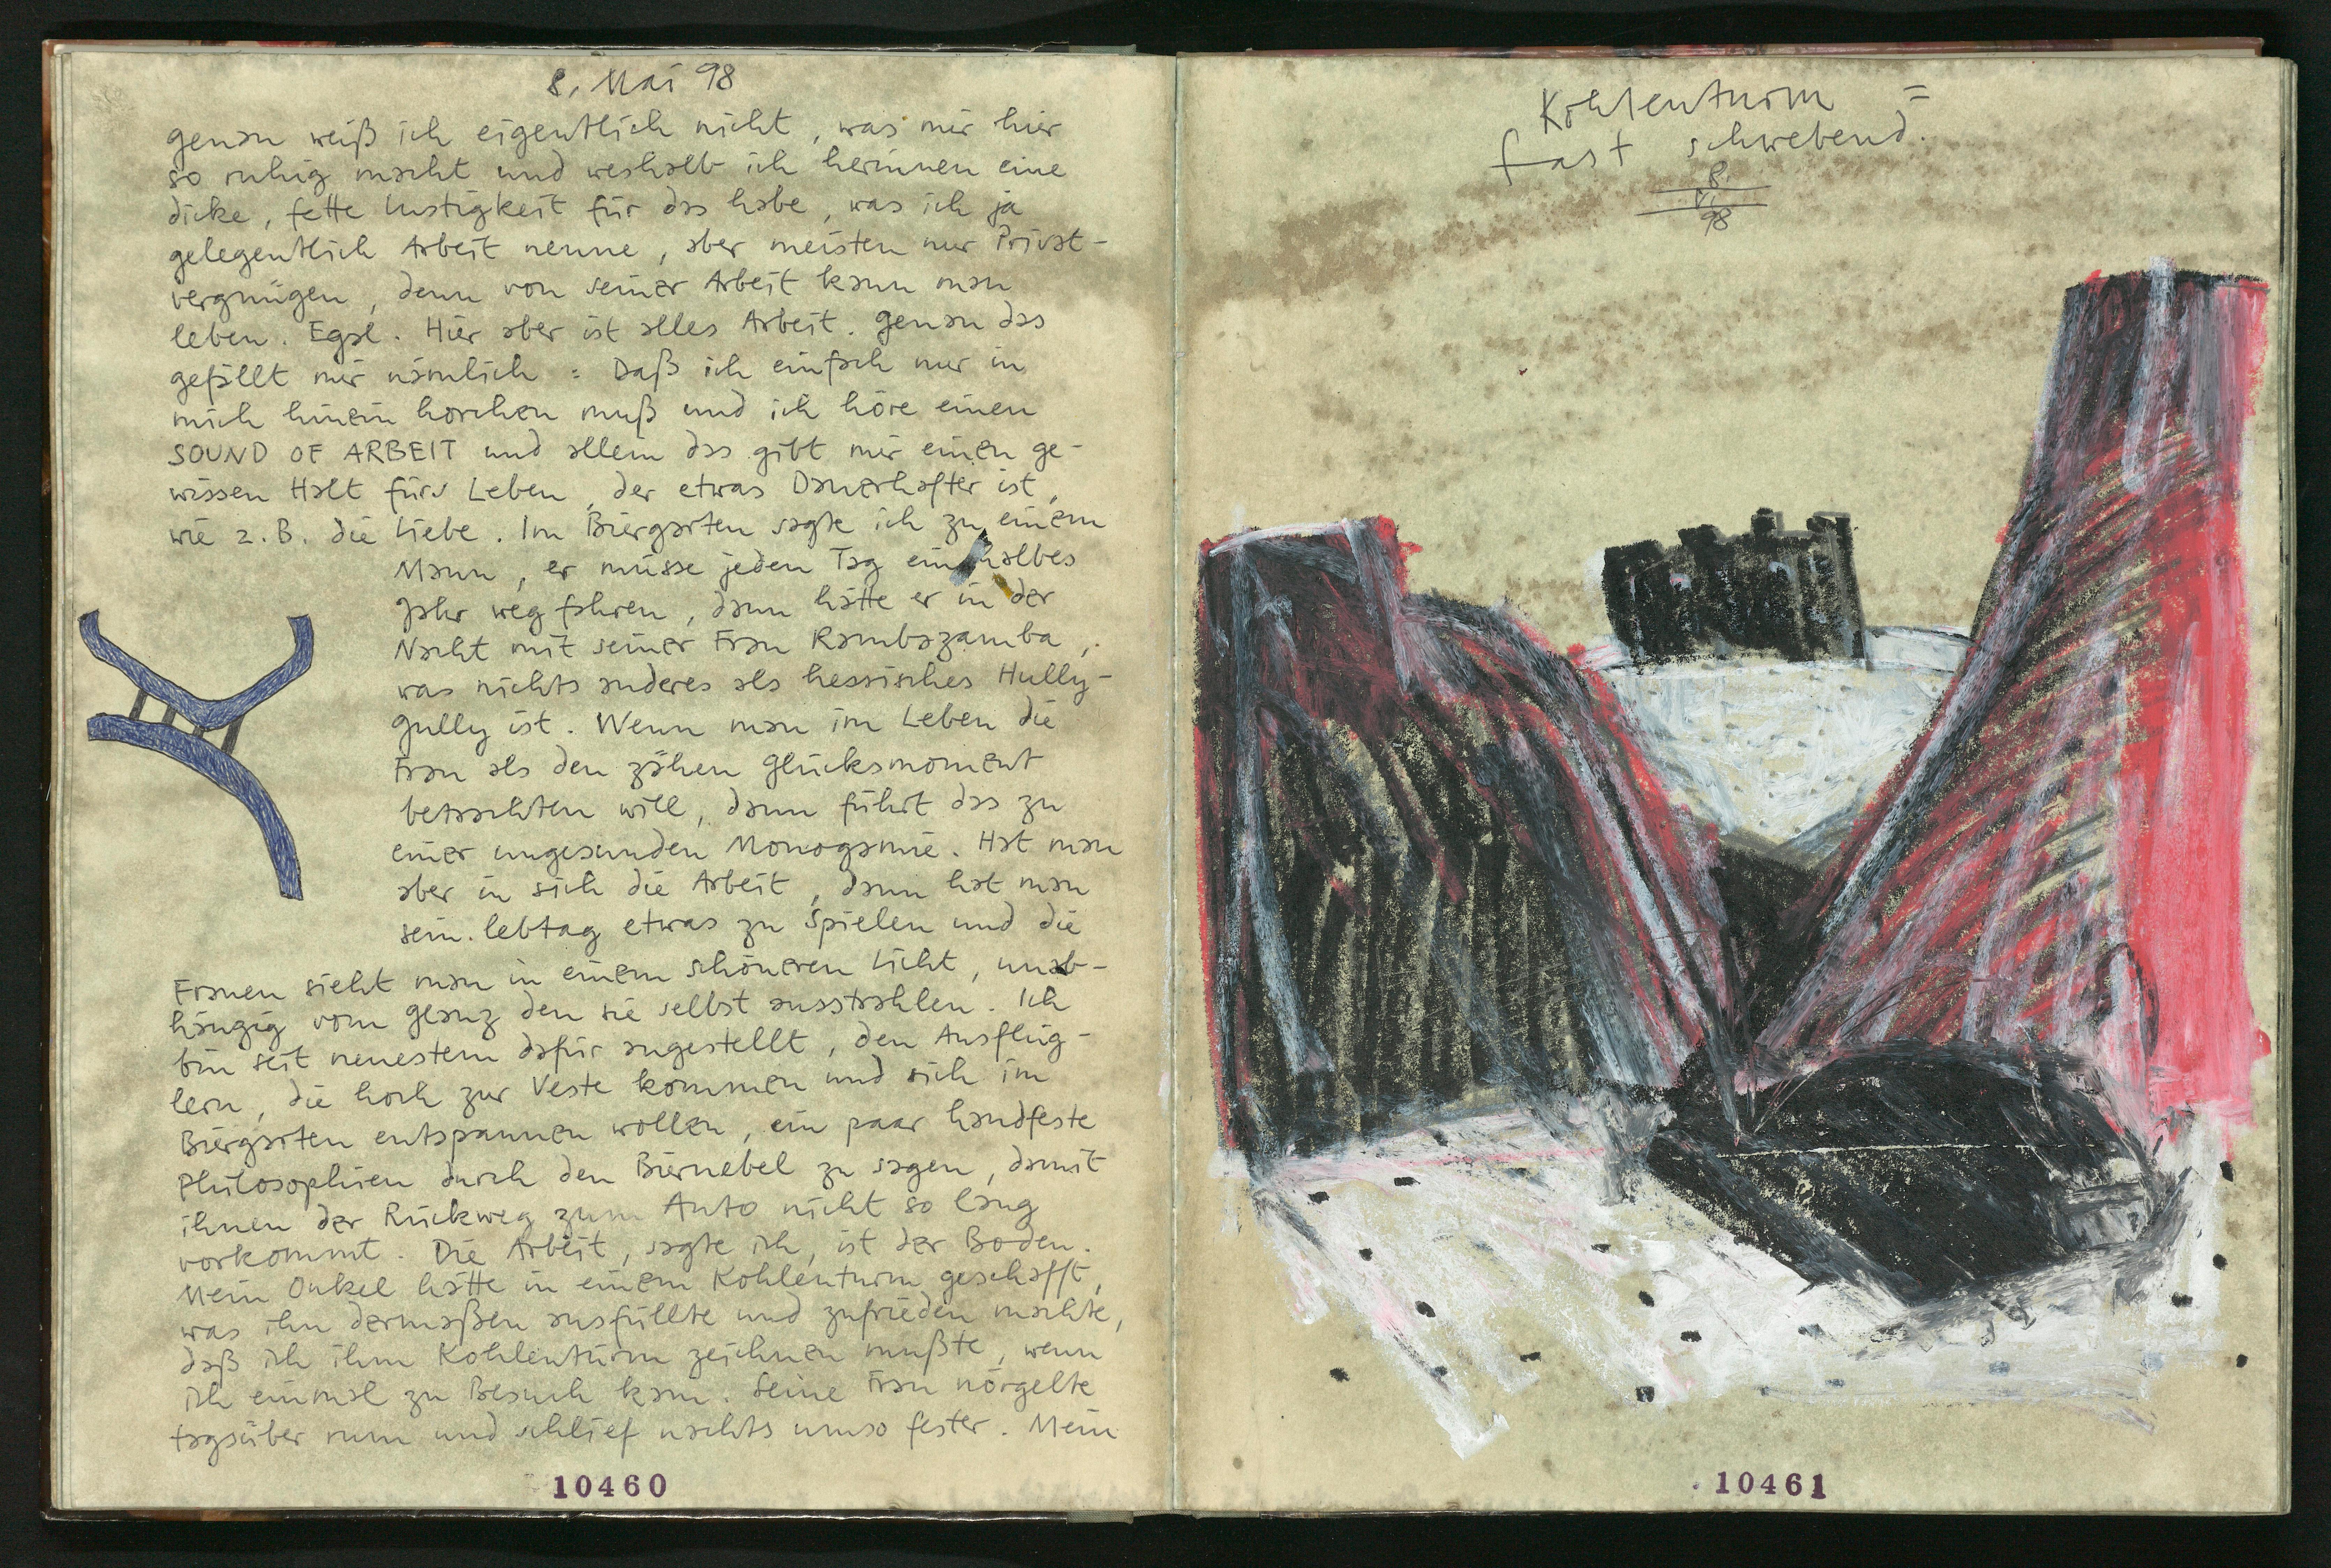 8. Mai 98
genau weiß ich eigentlich nicht, was mir hier
so ruhig macht und weshalb ich herinnen eine
dicke, fette Lustigkeit für das habe, was ich ja
gelegentlich Arbeit nenne, aber meisten nur Privat-
vergnügen, denn von seiner Arbeit kann man
leben. Egal. Hier aber ist alles Arbeit. genau das
gefällt mir nämlich : Daß ich einfach nur in
mich hinein horchen muß und ich höre einen
SOUND OF ARBEIT und allein das gibt mir einen ge-
wissen Halt fürs Leben, der etwas Dauerhafter ist,
wie z.B. die Liebe. Im Biergarten sagte ich zu einem
Mann, er müsse jeden Tag ein halbes
Jahr weg fahren, dann hätte er in der
Nacht mit seiner Frau Rambazamba,
was nichts anderes als hessisches Hully-
gully ist. Wenn man im Leben die
Frau als den zähen Glücksmoment
betrachten will, dann führt das zu
einer ungesunden Monogamie. Hat man
aber in sich die Arbeit, dann hat man
sein lebtag etwas zu spielen und die
Frauen sieht man in einem schöneren Licht, unab-
hängig vom glanz den sie selbst ausstrahlen. Ich
bin seit neuestem dafür angestellt, den Ausflüg-
lern, die hoch zur Veste kommen und sich im
Biergarten entspannen wollen, ein paar handfeste
Philosophien durch den Biernebel zu sagen, damit
ihnen der Rückweg zum Auto nicht so lang
vorkommt. Die Arbeit, sagte ich, ist der Boden.
Mein Onkel hätte in einem Kohlenturm geschafft,
was ihn dermaßen ausfüllte und zufrieden machte,
daß ich ihm Kohlentürm zeichnen mußte, wenn
ich einmal zu Besuch kam. Seine Frau nörgelte
tagsüber rum und schlief nachts umso fester. Mein
10460
Kohlenturm =
fast schwebend.
8.
V.
98
10461